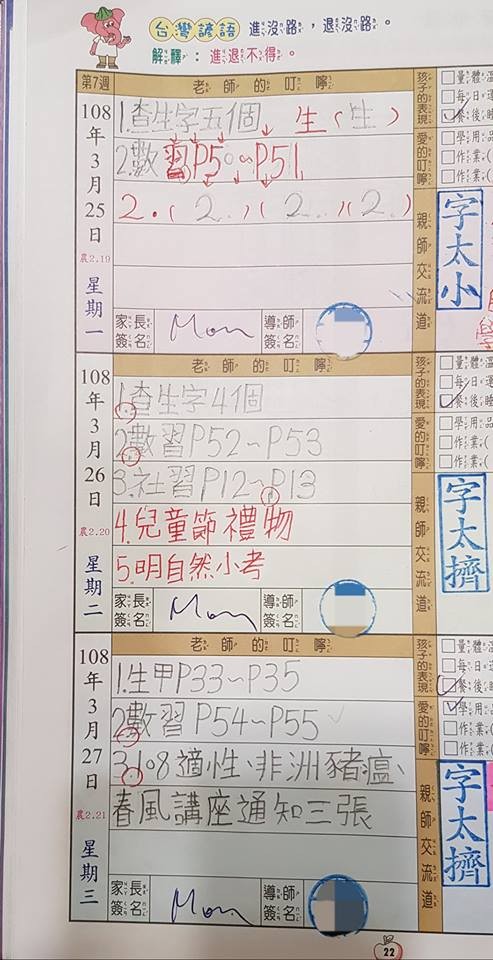 台灣諺語 進沒路，退沒路。
解釋：進退不得。
第7週 老師的叮嚀
108年3月25日
農2.19
星期一
1.查生字五個 生(生)
2.數習P50~P51
2.(2.)(2.)(2.)
家長簽名 Mom 導師簽名
孩子的表現
量體溫
每日運
餐後睡
愛的叮嚀
學用品
作業
作業
親師交流道
字太小
老師的叮嚀
108年3月26日
農2.20
星期二
1.查生字4個
2.數習P52~P53
3.社習P12~P13
4.兒童節禮物
5.明自然小考
家長簽名 Mom 導師簽名
孩子的表現
量體溫
每日運
餐後睡
愛的叮嚀
學用品
作業
作業
親師交流道
字太擠
老師的叮嚀
108年3月27日
農2.21
星期三
1.生甲P33~P35
2.數習P54~P55
3.108適性、非洲豬瘟、
春風講座通知三張
家長簽名 Mom 導師簽名
孩子的表現
量體溫
每日運
餐後睡
愛的叮嚀
學用品
作業
作業
親師交流道
字太擠
22